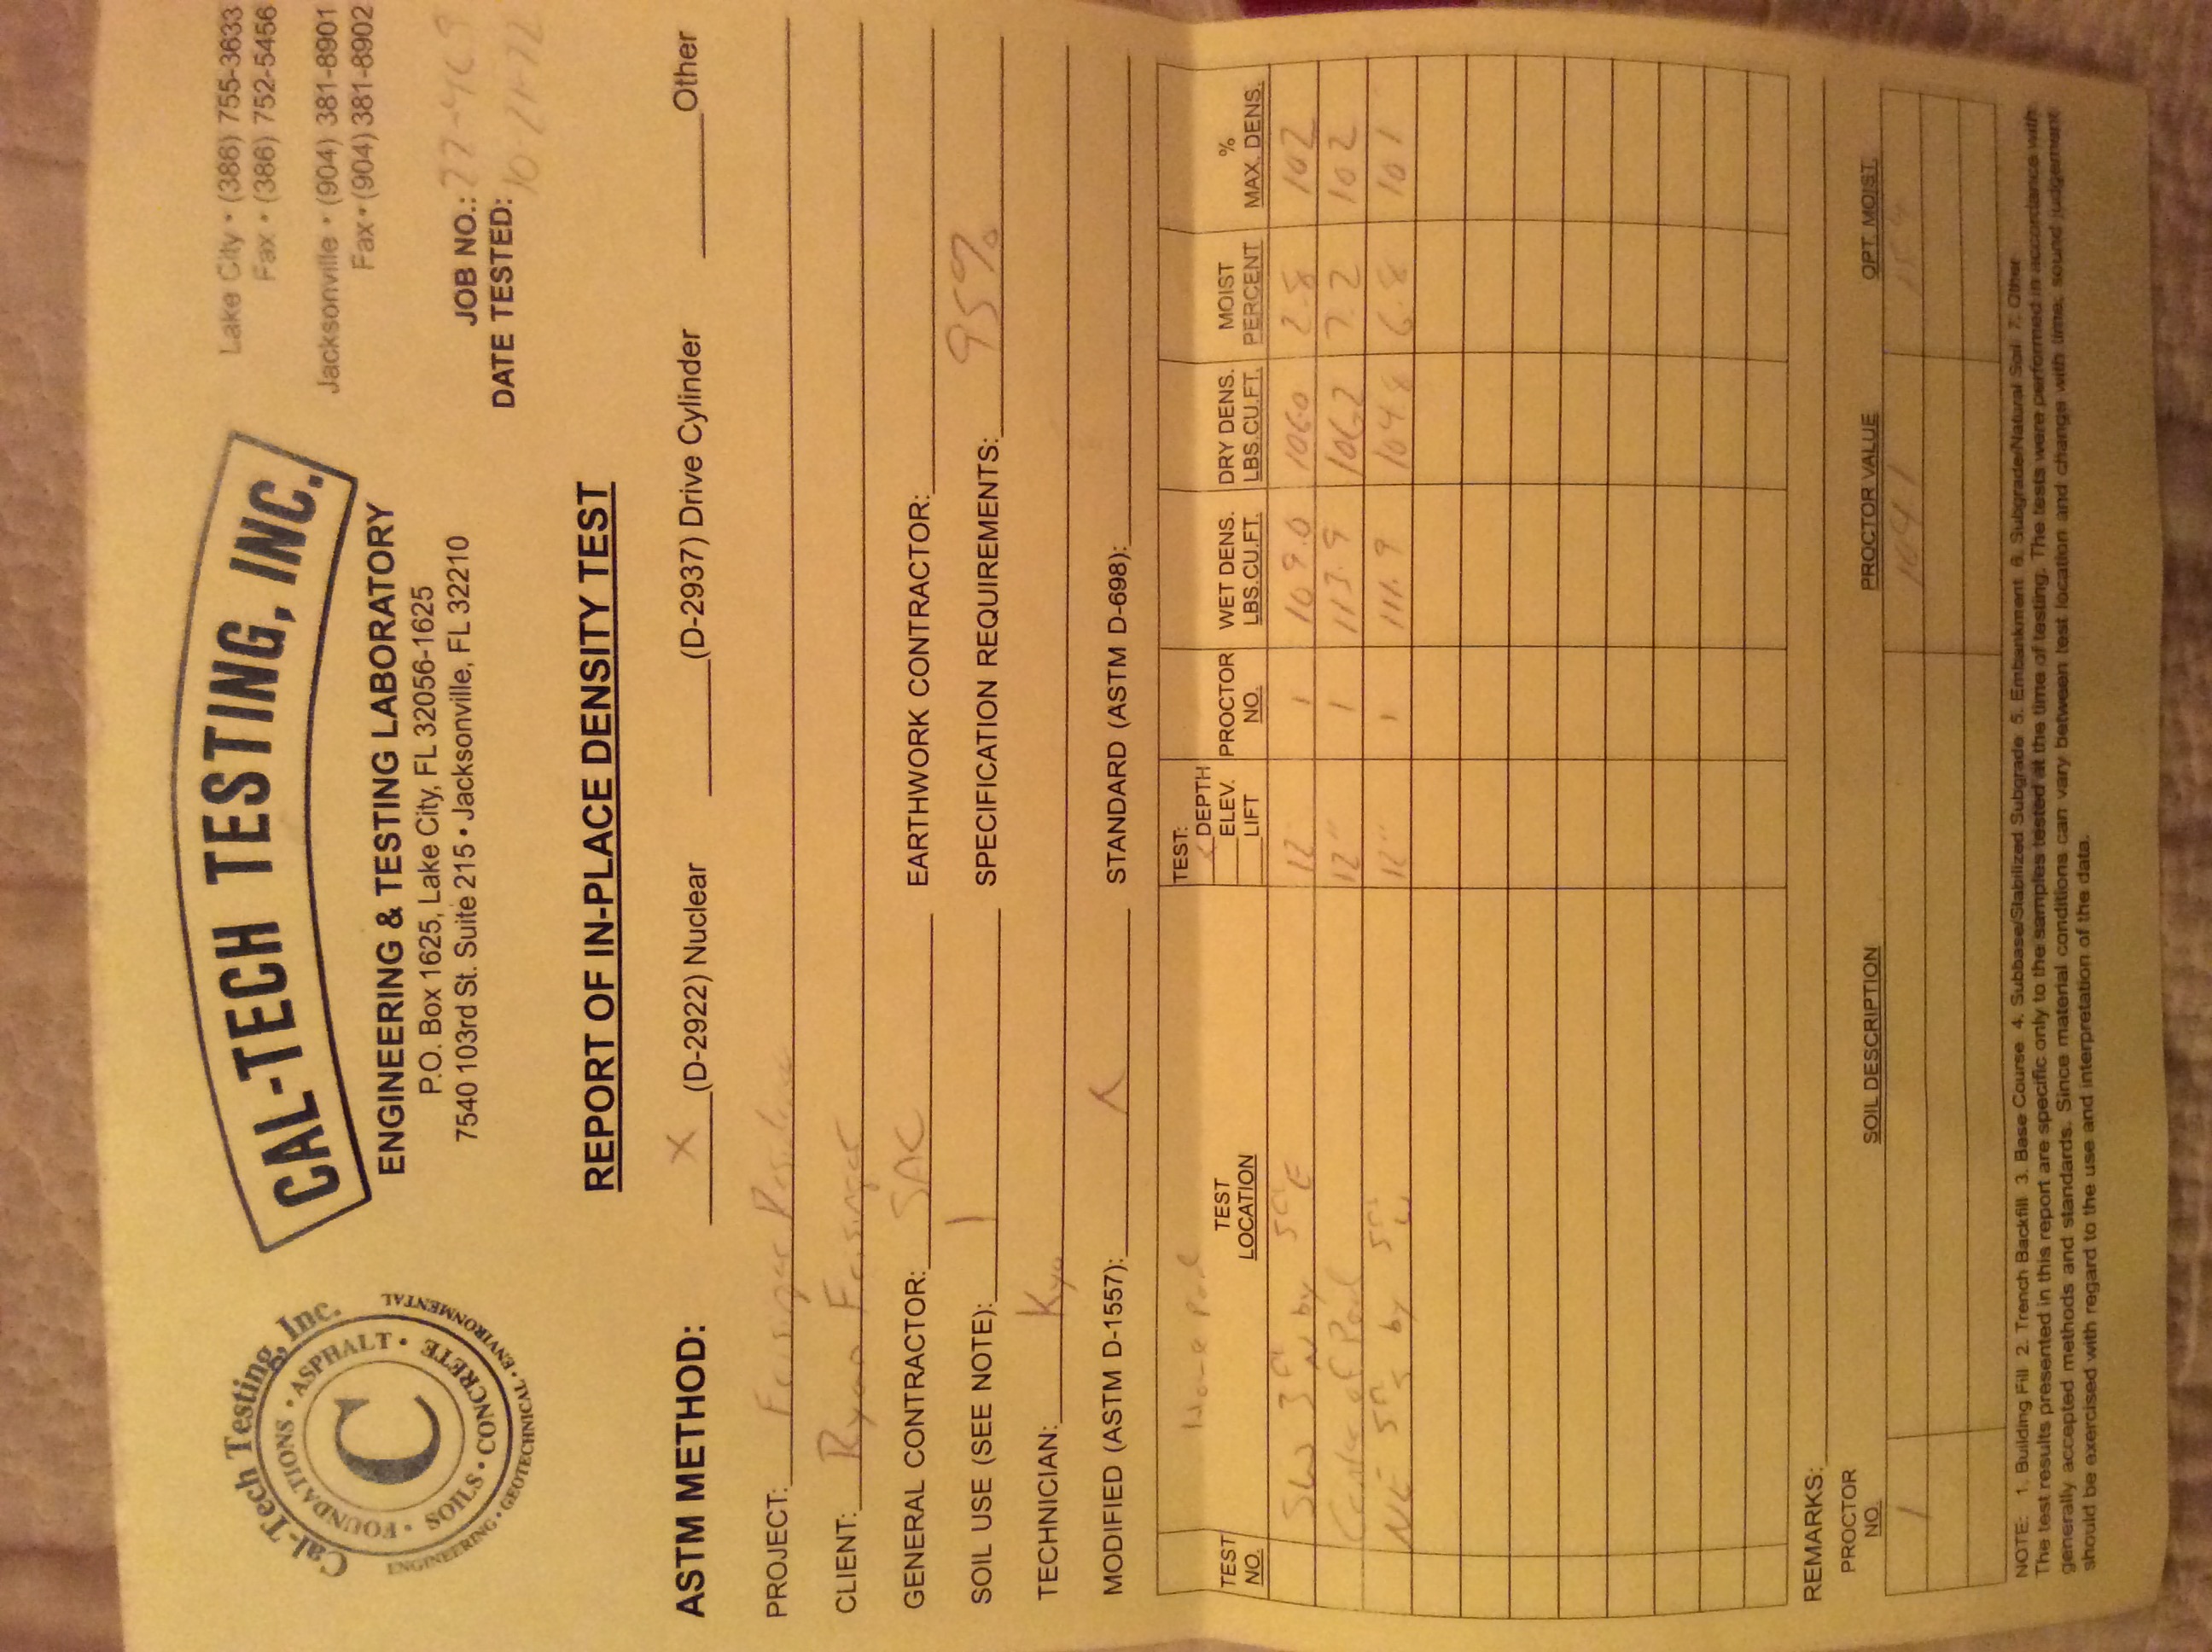 Cal-Tech Testing, Inc.
FOUNDATIONS • ASPHALT • CONCRETE • SOILS •
C
ENGINEERING • GEOTECHNICAL • ENVIRONMENTAL
CAL-TECH TESTING, INC.
ENGINEERING & TESTING LABORATORY
P.O. Box 1625, Lake City, FL 32056-1625
7540 103rd St. Suite 215 • Jacksonville, FL 32210
Lake City • (386) 755-3633
Fax • (386) 752-5456
Jacksonville • (904) 381-8901
Fax • (904) 381-8902
JOB NO.:
DATE TESTED:
REPORT OF IN-PLACE DENSITY TEST
ASTM METHOD: X (D-2922) Nuclear (D-2937) Drive Cylinder Other
PROJECT:
CLIENT: Ryan
GENERAL CONTRACTOR: EARTHWORK CONTRACTOR:
SOIL USE (SEE NOTE): 1 SPECIFICATION REQUIREMENTS: 95%
TECHNICIAN:
MODIFIED (ASTM D-1557): X STANDARD (ASTM D-698):
TEST NO. TEST LOCATION TEST: DEPTH ELEV. LIFT PROCTOR NO. WET DENS. LBS.CU.FT. DRY DENS. LBS.CU.FT. MOIST PERCENT % MAX. DENS.
SW N by E 12" 1 109.0 106.0 2.8 102
Center of Pad 12" 1 113.9 106.2 7.2 102
NE S by W 12" 1 111.9 104.8 6.8 101
REMARKS:
PROCTOR NO. SOIL DESCRIPTION PROCTOR VALUE OPT. MOIST.
1 104.1
NOTE: 1. Building Fill 2. Trench Backfill 3. Base Course 4. Subbase/Stabilized Subgrade 5. Embankment 6. Subgrade/Natural Soil 7. Other
The test results presented in this report are specific only to the samples tested at the time of testing. The tests were performed in accordance with
generally accepted methods and standards. Since material conditions can vary between test location and change with time, sound judgement
should be exercised with regard to the use and interpretation of the data.